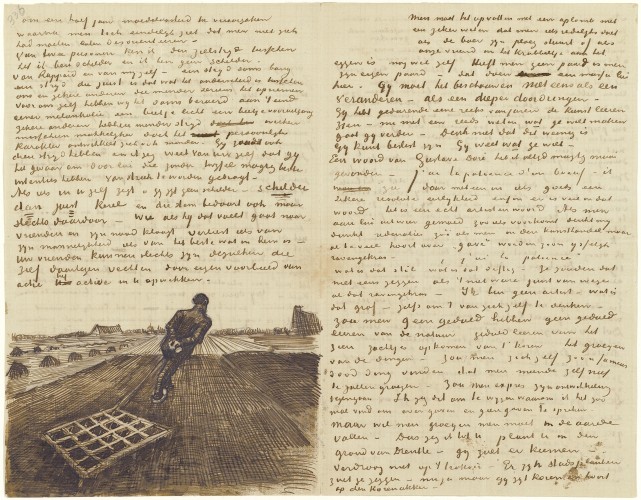 om een half jaar
waarna men toch eindelijk ziet dat men met zich
had moeten laten desorienteeren.
Van twee personen ken ik den zielstrijd tusschen
het ik ben schilder en ik ben geen schilder.
Van Rappard en van mij zelf – een strijd soms bang
een strijd die juist is dat wat het onderscheid is tusschen
ons en zekere anderen die minder serieus het opnemen
voor ons zelf hebben wij het soms beroerd aan 't eind
eener melankolie een beetje licht een beetje vooruitgang
zekere anderen hebben minder strijd werken
misschien makkelijker doch het persoonlijk
karakter ontwikkelt zich ook minder. Gij zoudt ook
dien strijd hebben en ik zeg weet van U zelf dat gij
het gevaar van door lui die zonder twijfel magtig beste
intenties hebben van streek te worden gebragt.
Als iets in U zelf zegt gij zijt geen schilder – schilder
dan juist kerel en die stem bedaart ook maar
slechts daardoor – wie als hij dat voelt gaat naar
vrienden en zijn nood klaagt verliest iets van
zijn mannelijkheid iets van het beste wat in hem is –
Uw vrienden kunnen slechts zijn degenen die
zelf daartegen vechten door eigen voorbeeld van
actie het actieve in U opwekken.
Men moet het opvatten met een aplomb met
een zeker weten dat men iets redelijks doet
als de boer zijn ploeg stuurt of als
onze vriend in het krabbeltje die het
eggen is nog wel zelf. Heeft men geen paard is men
zijn eigen paard – dat doen een massa lui
hier. Gij moet het beschouwen niet eens als een
veranderen – als een dieper doordringen –
Gij hebt gedurende reeds van jaren de kunst leeren
zien – nu met een reeds weten wat ge wilt maken
gaat gij verder – Denk niet dat dit weinig is
Gij kunt beslist zijn Gij weet wat ge wilt –
Een woord van Gustave Doré heb ik altijd mooi
gevonden – j'ai la patience d'un boeuf – ik
zie daar meteen in iets goeds een
zekere resolute eerlijkheid enfin er is veel in dat
woord, het is een echt artisten woord. Als men
denkt
redenatie zoo als men in den kunsthandel maar
al te veel hoort over "gave"
– j'ai la patience
wat is dat stil wat is dat deftig – Ze zouden dat
niet eens zeggen als 't niet ware juist van wege
al dat ravengekras – Ik ben geen artist – wat is
dat grof – zelfs om 't van zich zelf te denken –
zou men geen geduld hebben geen geduld
leeren van de natuur geduld leeren van het
zien zachtjes opkomen van 't koren het groeien
van de dingen – zou men zich zelf zoo'n
dood ding vinden dat men meende zelf niet
te zullen groeien – zou men expres zijn ontwikkeling
tegengaan Ik zeg dit om te wijzen waarom ik het zoo
mal vind om over gaven en geen gaven te spreken
Maar wil men groeien men moet in de aarde
vallen – Dus zeg ik tot U plant U in den
grond van Drenthe – gij zult er kiemen –
verdroog niet op 't trottoir – Er zijn stads planten
zult ge zeggen – nu ja maar gij zijt koren en hoort
op den korenakker –